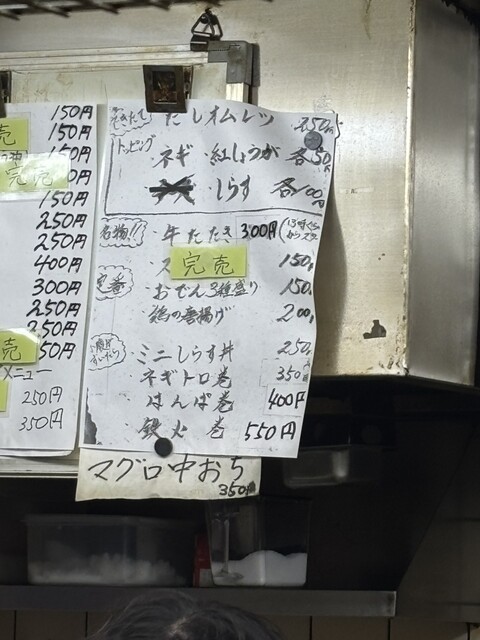 150円
売
150円
150円
完売
150円
250円
250円
400円
300円
250円
250円
売
50円
メニュー
250円
350円
だしオムレツ
トッピング
・ネギ ・紅しょうが 各50円
・しらす 各100円
名物!! ・牛たたき 300円
完売 150
定番 ・おでん3種盛り 150
・鶏の唐揚げ 200
・ミニしらす丼 250
・ネギトロ巻 350
・はんぱ巻 400円
・鉄火巻 550円
マグロ中おち
350円